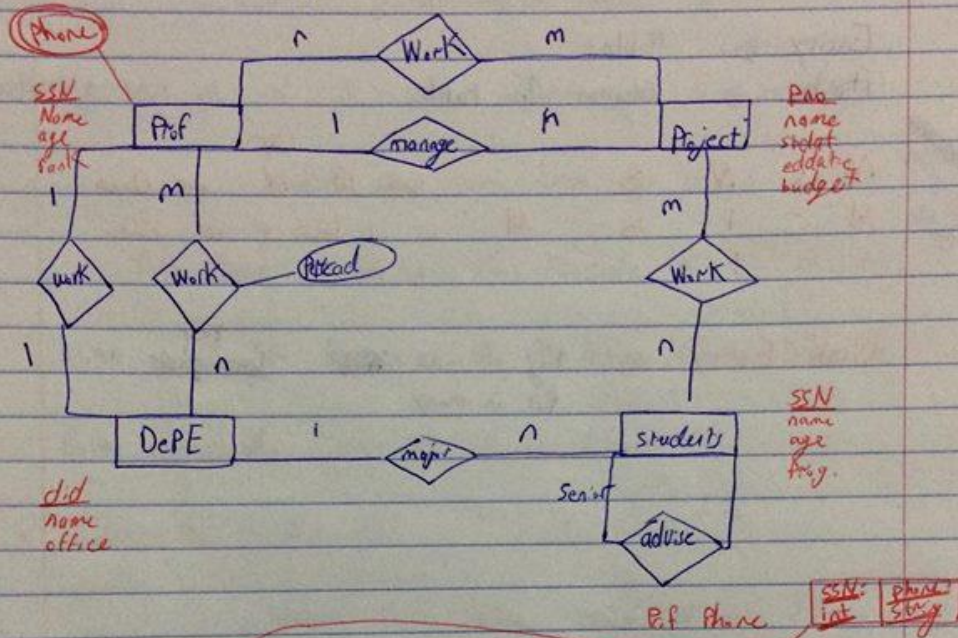 phone
n
Work
m
SSN
Name
age
rank
Prof
1
manage
n
Project
pno
name
stdat
eddate
budget
1
m
m
work
Work
Work
1
n
n
DePE
1
major
n
students
SSN
name
age
Prog.
did
name
office
Senior
advise
Prof Phone
SSN:
int
phone:
string